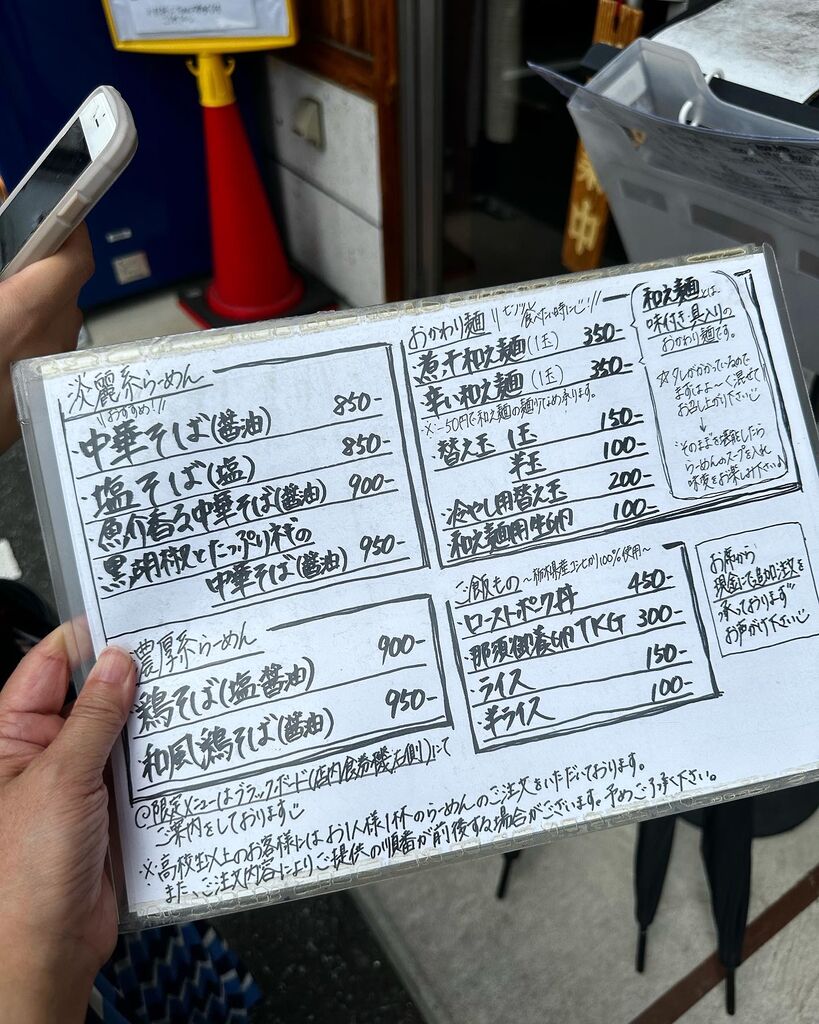 淡麗系らーめん
\\おすすめ!!
・中華そば(醤油) 850-
・塩そば(塩) 850-
・魚介香る中華そば(醤油) 900-
・黒胡椒とたっぷり
中華そば(醤油) 950-
濃厚系らーめん
・鶏そば(塩・醤油) 900-
・和風鶏そば(醤油) 950-
おかわり麺 食べたい時に!!
・煮干和え麺(1玉) 350-
・辛い和え麺(1玉) 350-
※-50円で和え麺の麺少なめ承ります。
・替え玉 1玉 150-
半玉 100-
・冷やし用替え玉 200-
・和え麺用生卵 100-
和え麺とは、
味付き・具入りの
おかわり麺です。
☆タレがかかっているので
まずはよ〜く混ぜて
お召し上がり下さい
↓
・そのままを堪能したら
らーめんのスープを入れ
味変をお楽しみ下さい♪
ご飯もの 〜栃木県産コシヒカリ100%使用〜
・ローストポーク丼 450-
・那須御養卵TKG 300-
・ライス 150-
・半ライス 100-
お席から
現金にて追加注文を
承っております
お声がけ下さい
◎限定メニューはブラックボード(店内食券機左側)にて
ご案内をしております
※高校生以上のお客様にはお1人様1杯のらーめんのご注文をいただいております。
また、ご注文内容によりご提供の順番が前後する場合がございます。予めご了承ください。
中